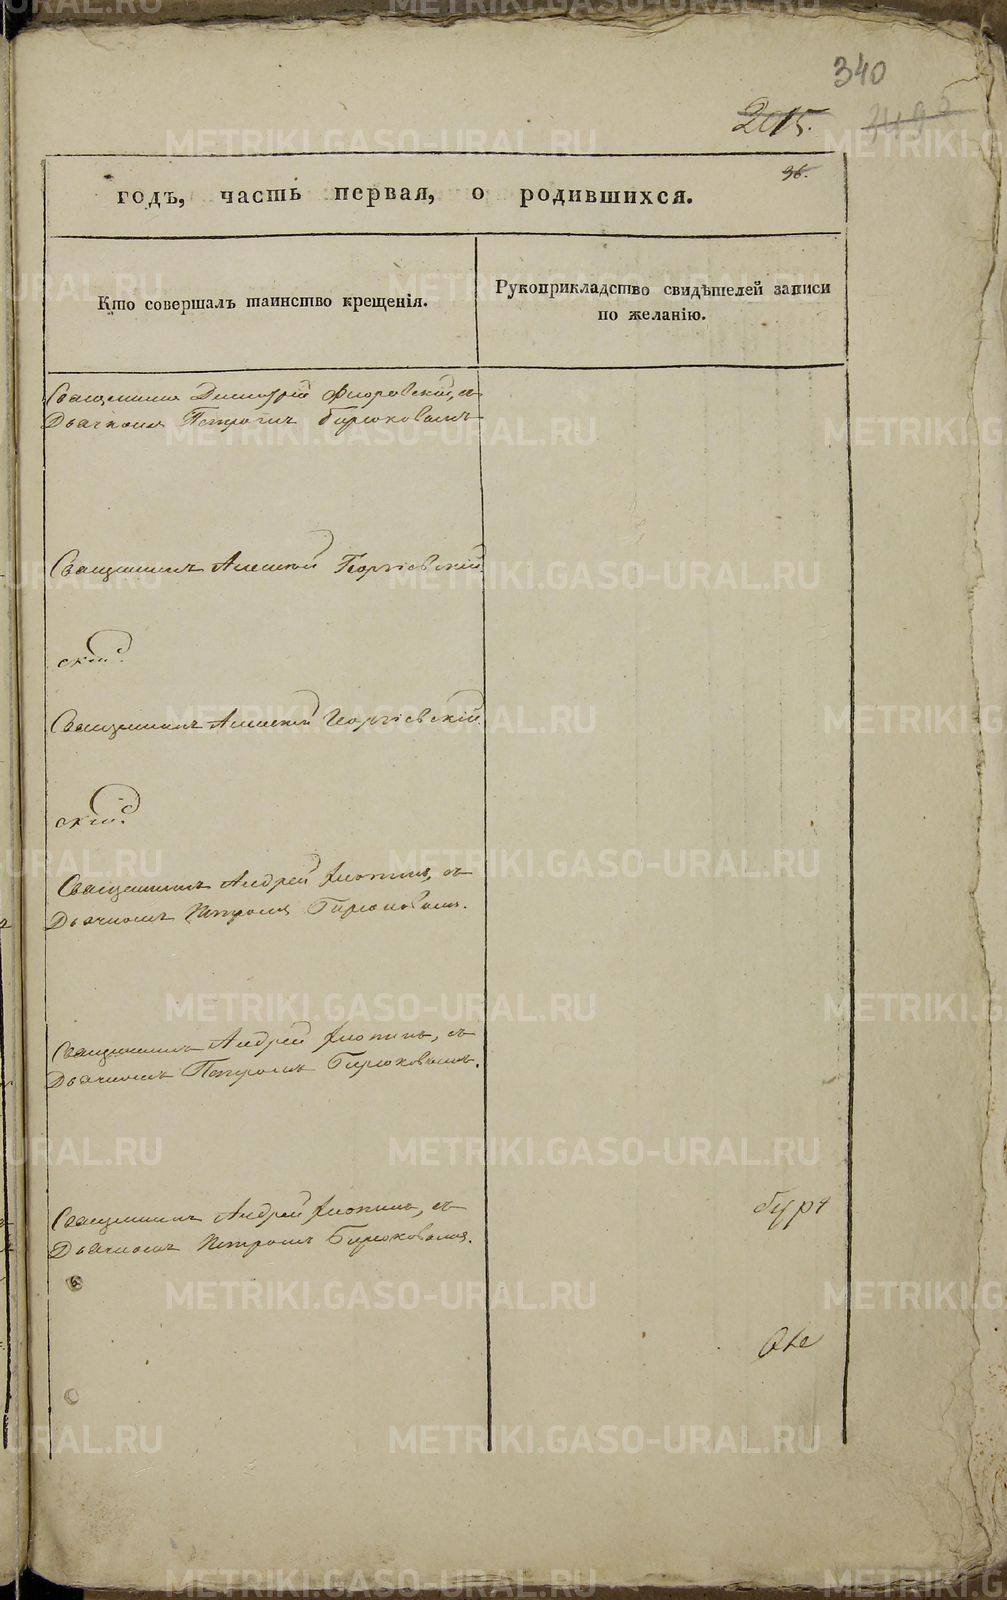 340
2015.
36.
годъ, часть первая, о родившихся.
Кто совершалъ таинство крещенія.
Рукоприкладство свидѣтелей записи
по желанію.
Священникъ Димитрій Флоровскій, съ
Дьячкомъ Петромъ Бирюковымъ
Священникъ Алексій Георгіевскій
скій.
Священникъ Алексій Георгіевскій
скій.
Священникъ Андрей съ
Дьячкомъ Петромъ Бирюковымъ.
Священникъ Андрей съ
Дьячкомъ Петромъ Бирюковымъ.
Священникъ Андрей съ
Дьячкомъ Петромъ Бирюковымъ.
METRIKI.GASO-URAL.RU